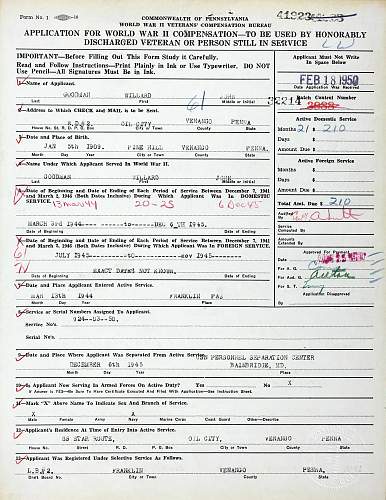 Form No. 1
COMMONWEALTH OF PENNSYLVANIA
WORLD WAR II VETERANS' COMPENSATION BUREAU
APPLICATION FOR WORLD WAR II COMPENSATION—TO BE USED BY HONORABLY
DISCHARGED VETERAN OR PERSON STILL IN SERVICE
IMPORTANT—Before Filling Out This Form Study it Carefully.
Read and Follow Instructions—Print Plainly in Ink or Use Typewriter. DO NOT
Use Pencil—All Signatures Must be in Ink.
Applicant Must Not Write In Space Below
FEB 18 1950
Date Application Was Received
Name of Applicant.
GOODMAN WILLARD JOHN
Last First Middle or Initial
61
32214
Batch Control Number
Address to Which CHECK and MAIL is to be Sent.
R.D#2, OIL CITY, VENANGO PENNA.
House No. St. R. D. P. O. Box City or Town County State
Active Domestic Service
Months 21 $ 210
Days
Amount Due $
Date and Place of Birth.
JAN 5TH 1909. PINE HILL VENANGO PENNA.
Month Day Year City or Town County State
Active Foreign Service
Months $
Days
Amount Due $
Name Under Which Applicant Served In World War II.
GOODMAN WILLARD JOHN
Last First Middle or Initial
Total Amt. Due $ 210
Date of Beginning and Date of Ending of Each Period of Service Between December 7, 1941 and March 2, 1946 (Both Dates Inclusive) During Which Applicant Was In DOMESTIC SERVICE.
13 Mar 44 20-25 6 Dec 45
MARCH 3RD 1944 ---- to ---- DEC 6TH 1945.
Audited By
Service Computed By
Amounts Extended By
Date of Beginning and Date of Ending of Each Period of Service Between December 7, 1941 and March 2, 1946 (Both Dates Inclusive) During Which Applicant Was In FOREIGN SERVICE.
JULY 1945 ---- to ---- NOV 1945
EXACT DATES NOT KNOWN.
Approved For Payment
For A. G.
For S. T.
Application Disapproved
Date and Place Applicant Entered Active Service.
MAR 13TH 1944 FRANKLIN PA.
Service or Serial Numbers Assigned To Applicant.
Service No's.
Serial No's.
Date and Place Where Applicant Was Separated From Active Service.
USN PERSONNEL SEPARATION CENTER
DECEMBER 6TH 1945 BAINBRIDGE, MD.
Is Applicant Now Serving in Armed Forces On Active Duty? Yes No X
Mark "X" Above Name To Indicate Sex And Branch of Service.
X X
Male Female Army Navy Marine Corps Coast Guard Other—Describe
Applicant's Residence At Time of Entry Into Active Service.
STAR ROUTE, OIL CITY, VENANGO PENNA
House No. Street R. D. P. O. Box City or Town County State
Applicant Was Registered Under Selective Service As Follows.
L.B.#2, FRANKLIN VENANGO PENNA,
Draft Board No. City or Town County State